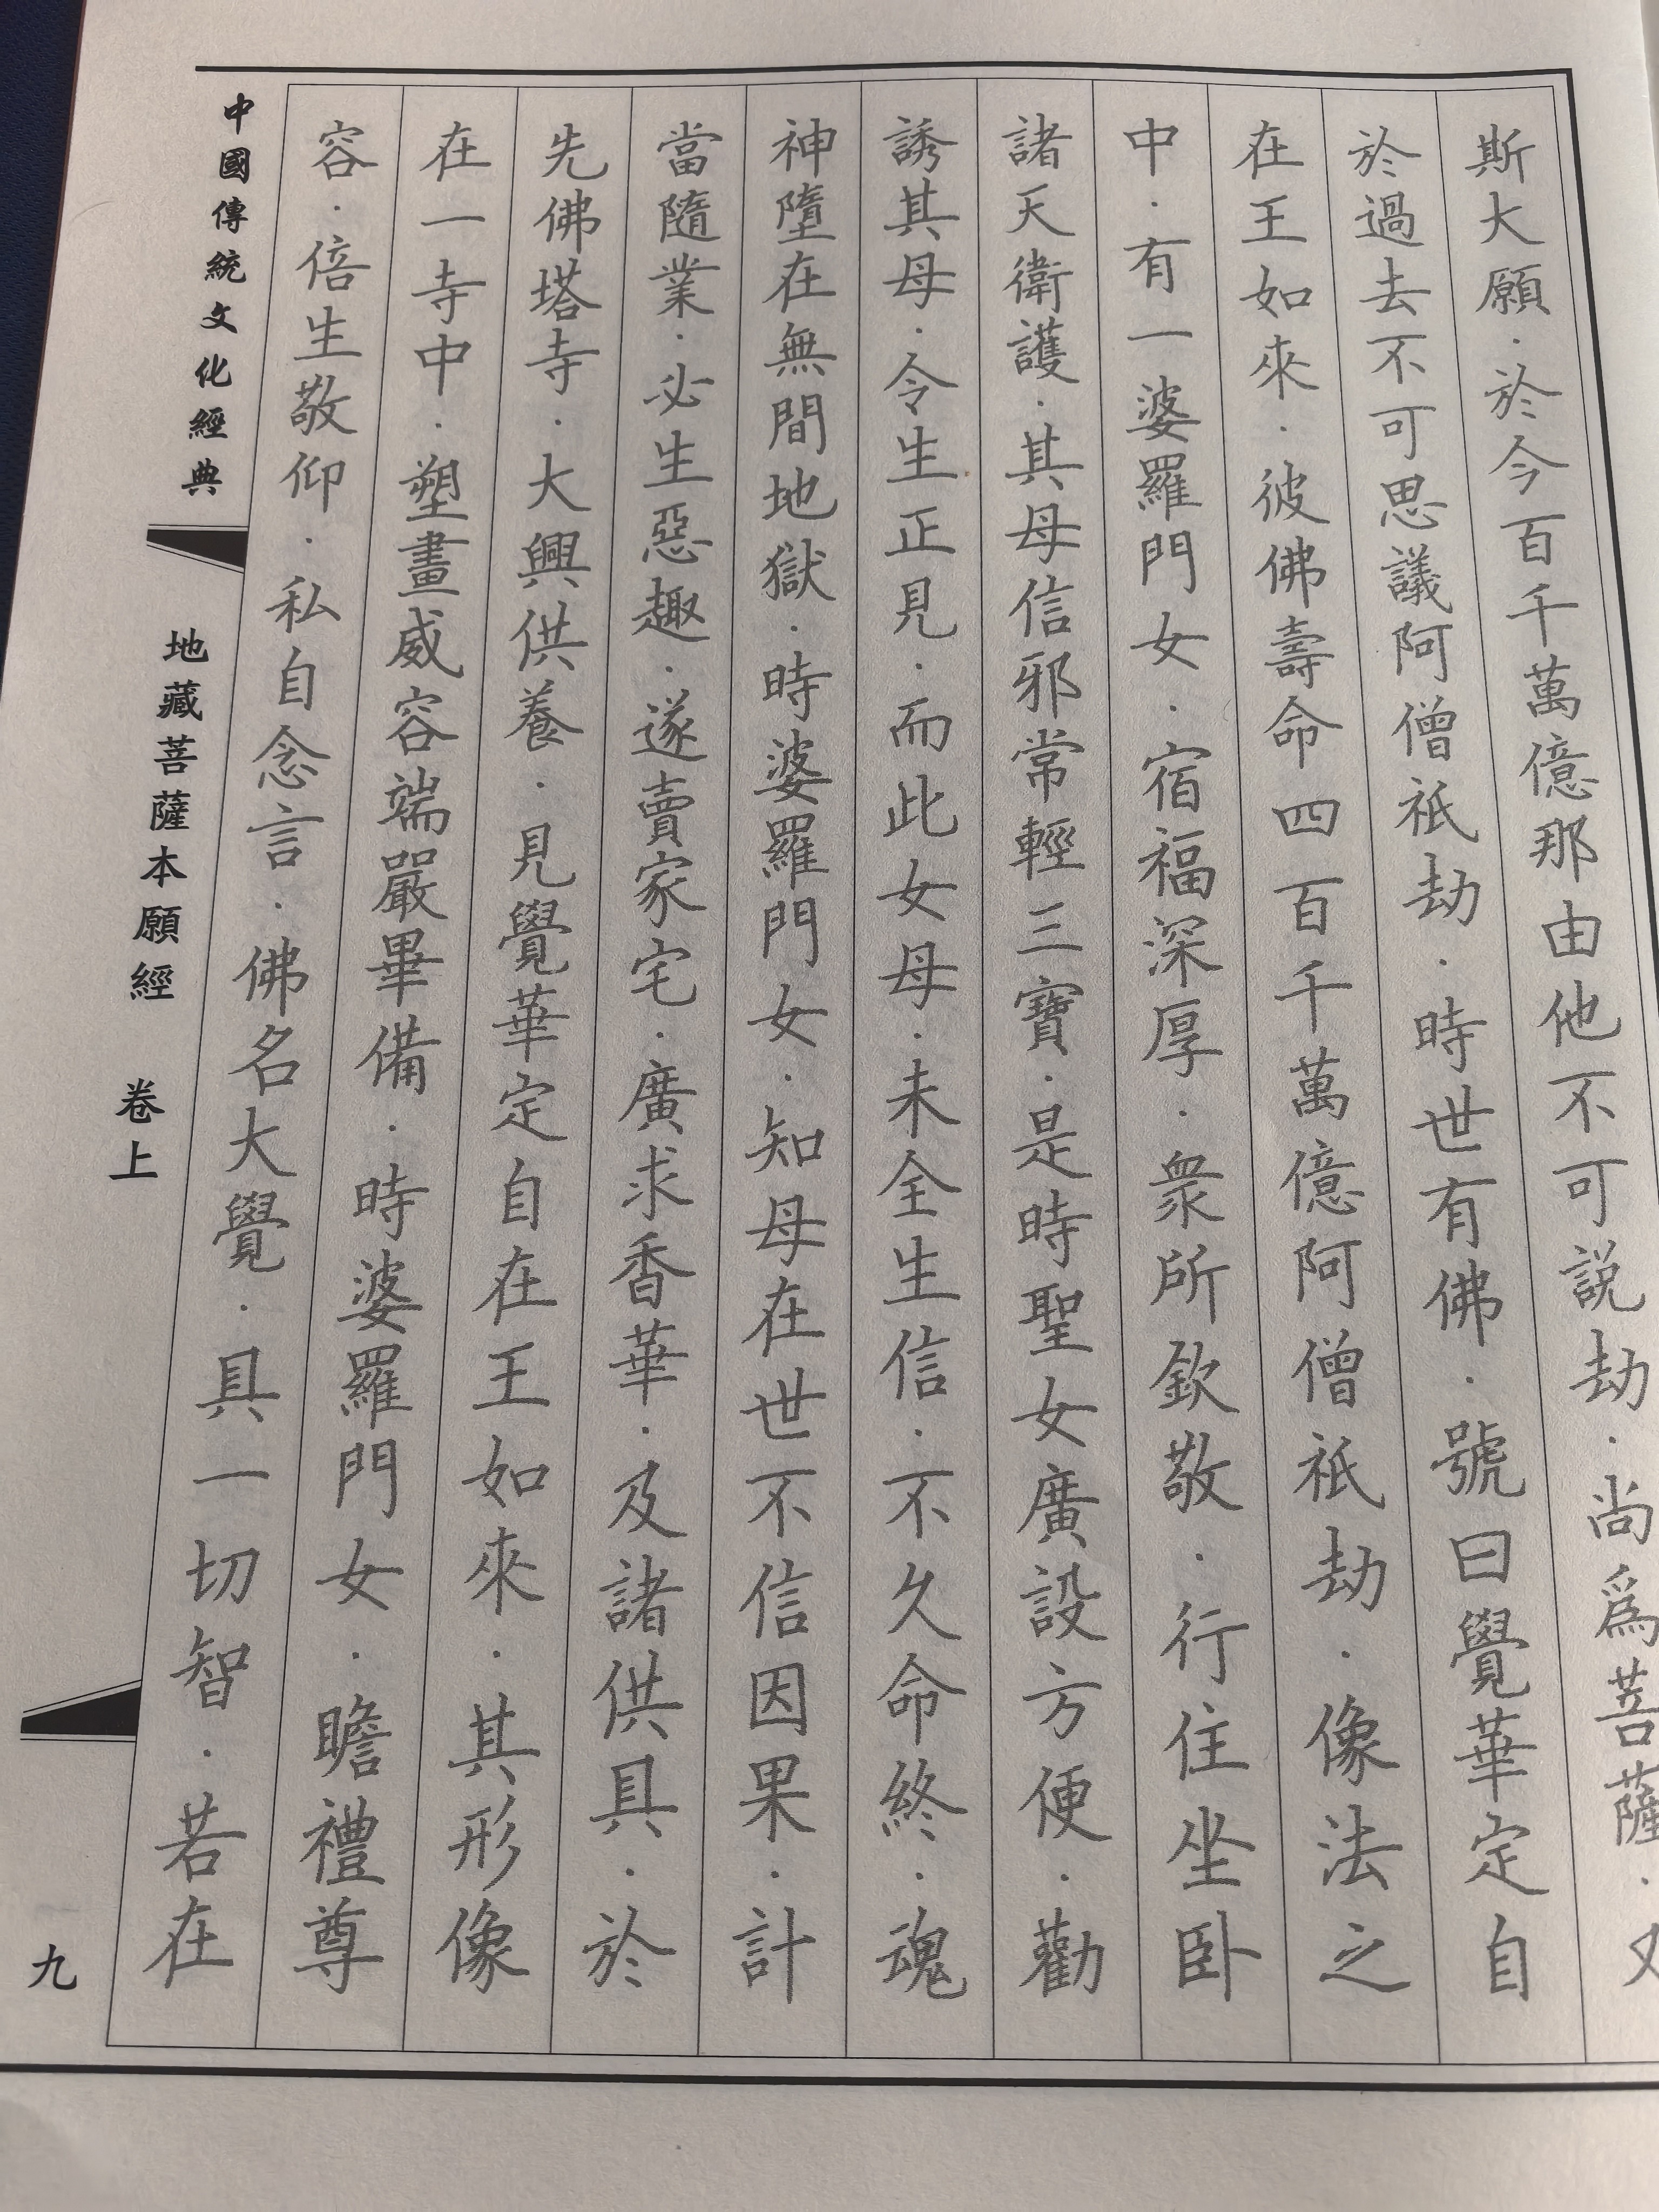 斯大願．於今百千萬億那由他不可説劫．尚爲菩薩．又
於過去不可思議阿僧祇劫．時世有佛．號曰覺華定自
在王如來．彼佛壽命四百千萬億阿僧祇劫．像法之
中．有一婆羅門女．宿福深厚．衆所欽敬．行住坐卧
諸天衛護．其母信邪常輕三寶．是時聖女廣設方便．勸
誘其母．令生正見．而此女母．未全生信．不久命終．魂
神墮在無間地獄．時婆羅門女．知母在世不信因果．計
當隨業．必生惡趣．遂賣家宅．廣求香華．及諸供具．於
先佛塔寺．大興供養．見覺華定自在王如來．其形像
在一寺中．塑畫威容端嚴畢備．時婆羅門女．瞻禮尊
容．倍生敬仰．私自念言．佛名大覺．具一切智．若在
中國傳統文化經典
地藏菩薩本願經 卷上
九